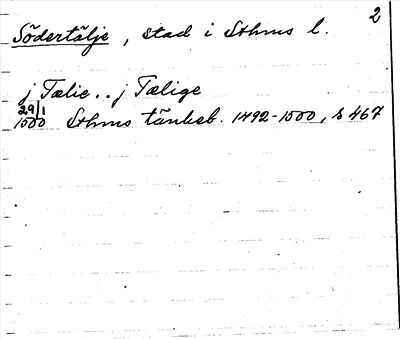 2
Södertälje, stad i Sthms l.
j Tælie.. j Tælige
29/1 1500 Sthms tänkeb. 1492-1500, s 467